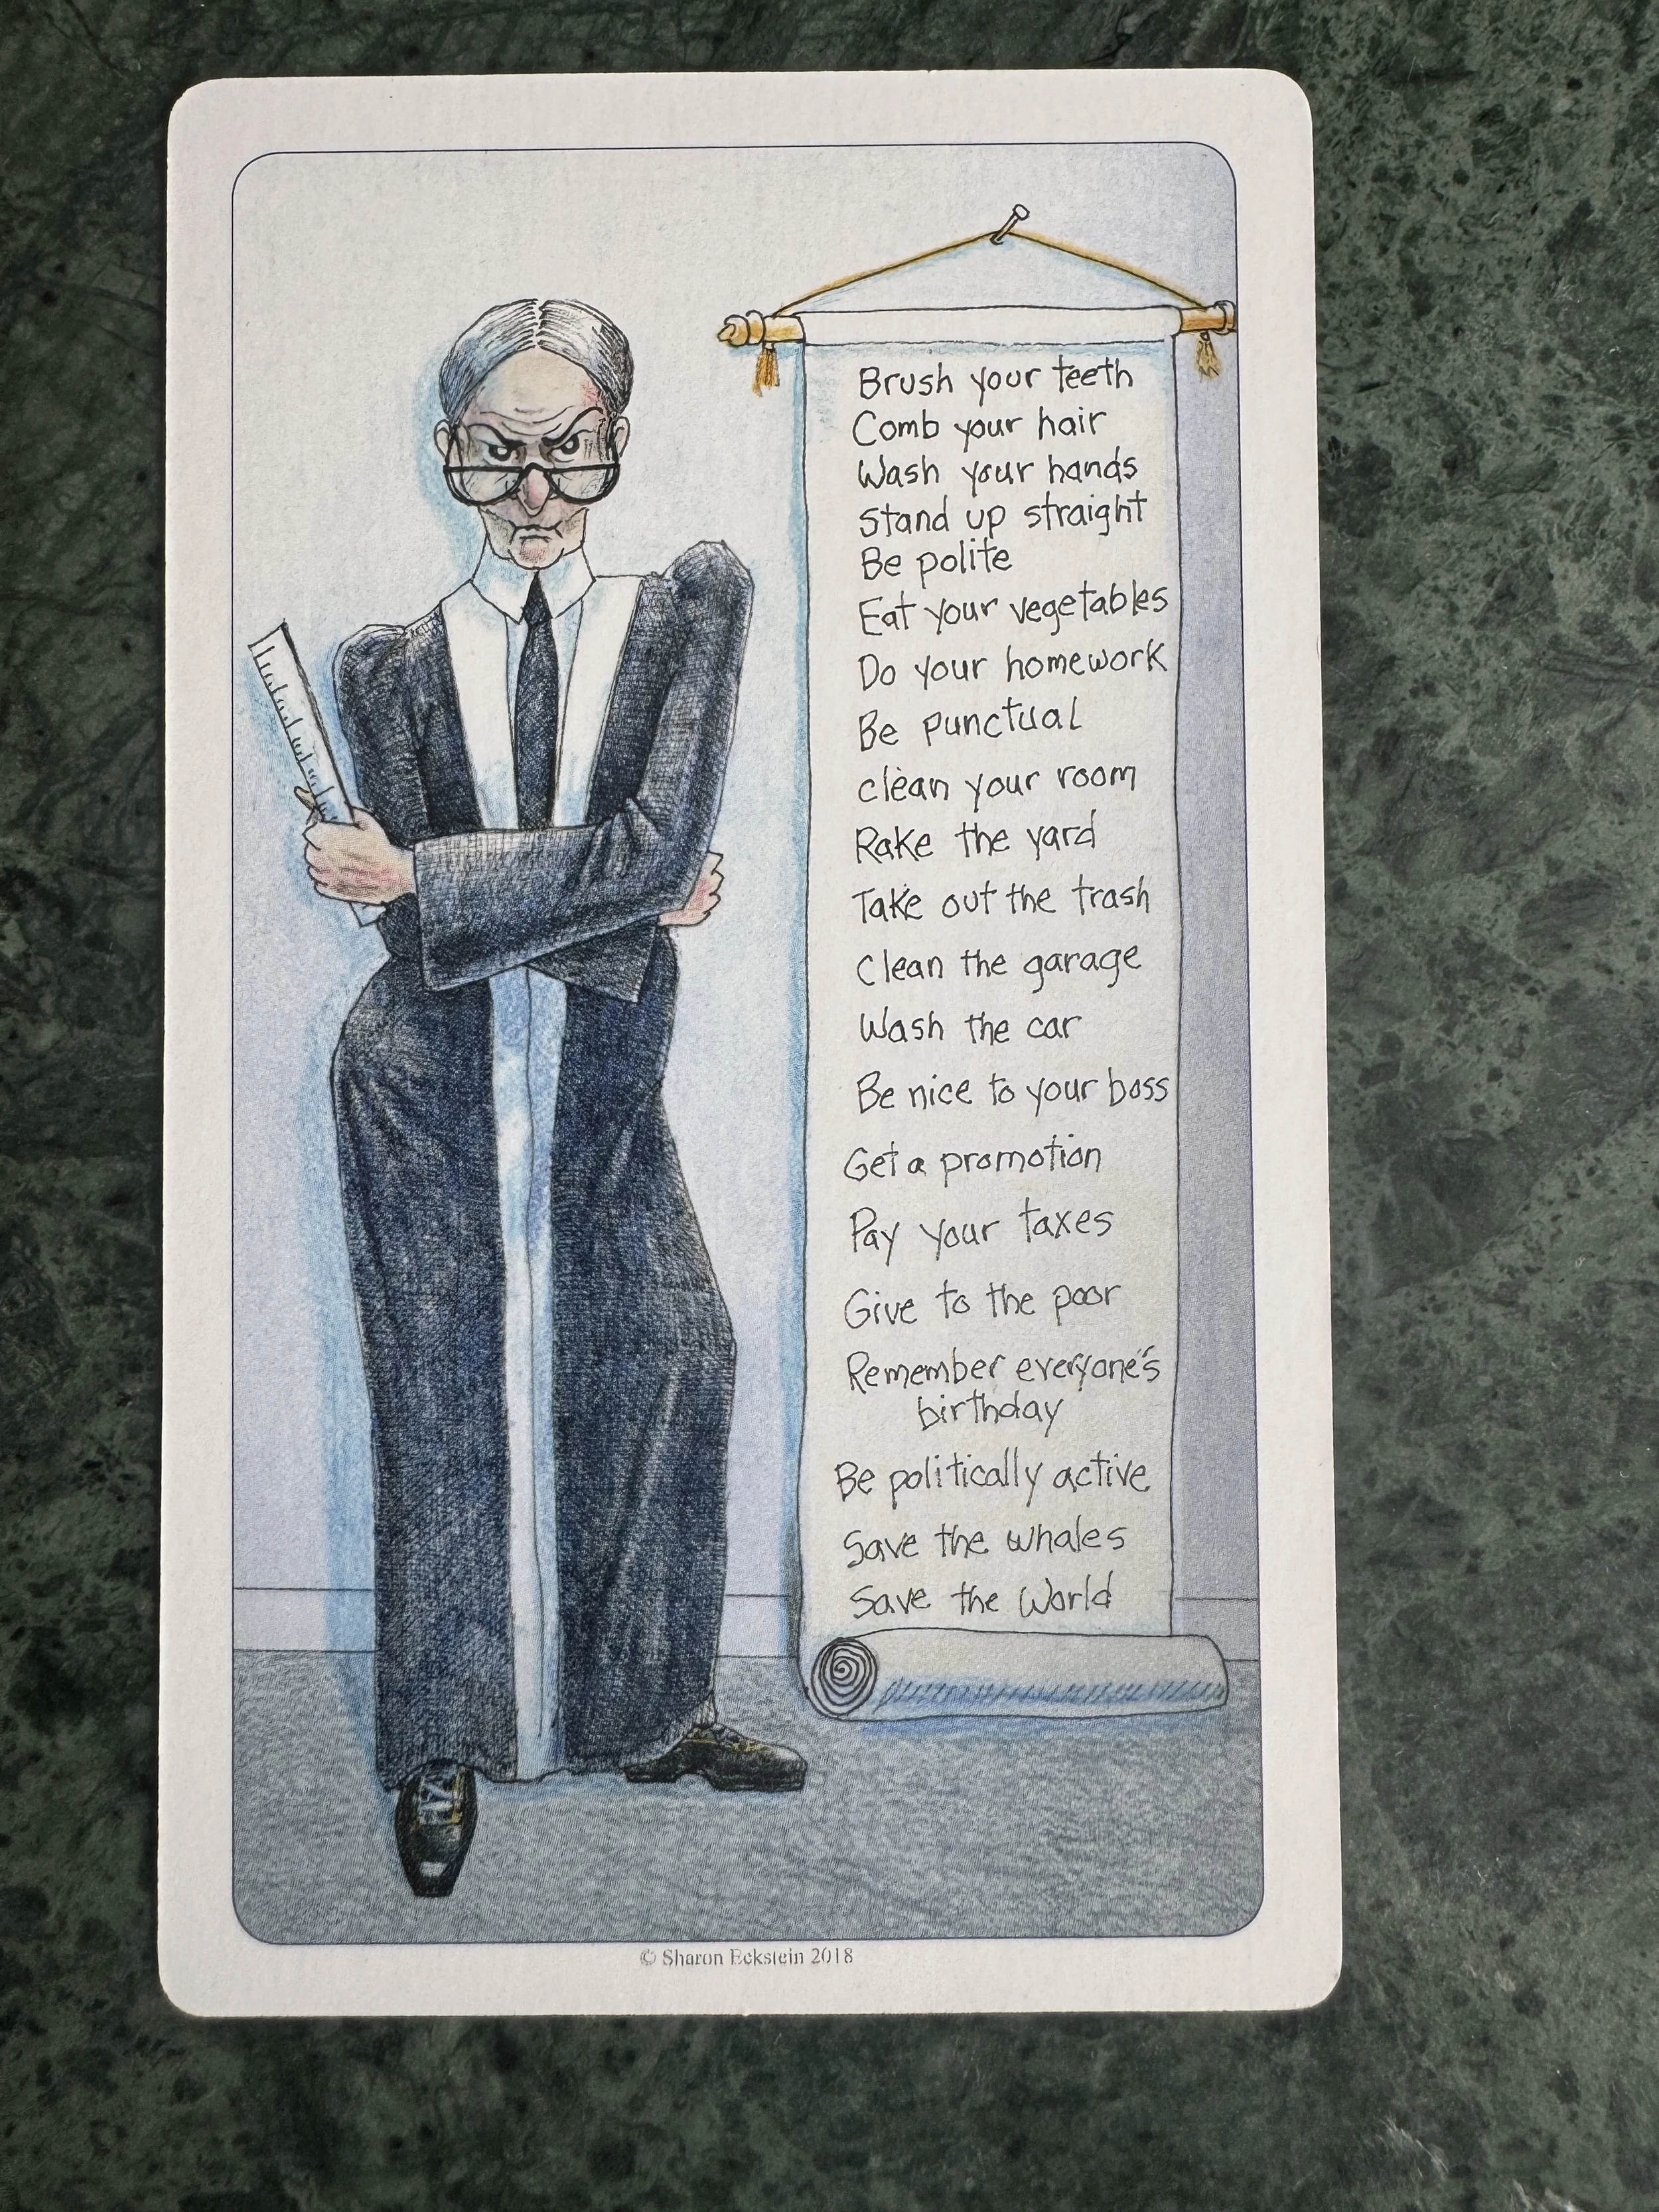 Brush your teeth
Comb your hair
Wash your hands
Stand up straight
Be polite
Eat your vegetables
Do your homework
Be punctual
clean your room
Rake the yard
Take out the trash
Clean the garage
Wash the car
Be nice to your boss
Get a promotion
Pay your taxes
Give to the poor
Remember everyone's
birthday
Be politically active
Save the whales
Save the World
© Sharon Eckstein 2018